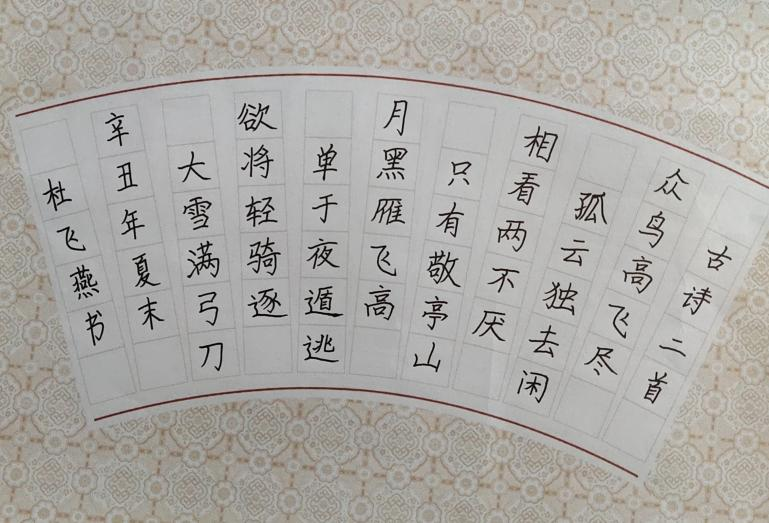 古诗二首
众鸟高飞尽
孤云独去闲
相看两不厌
只有敬亭山
月黑雁飞高
单于夜遁逃
欲将轻骑逐
大雪满弓刀
辛丑年夏末
杜飞燕书